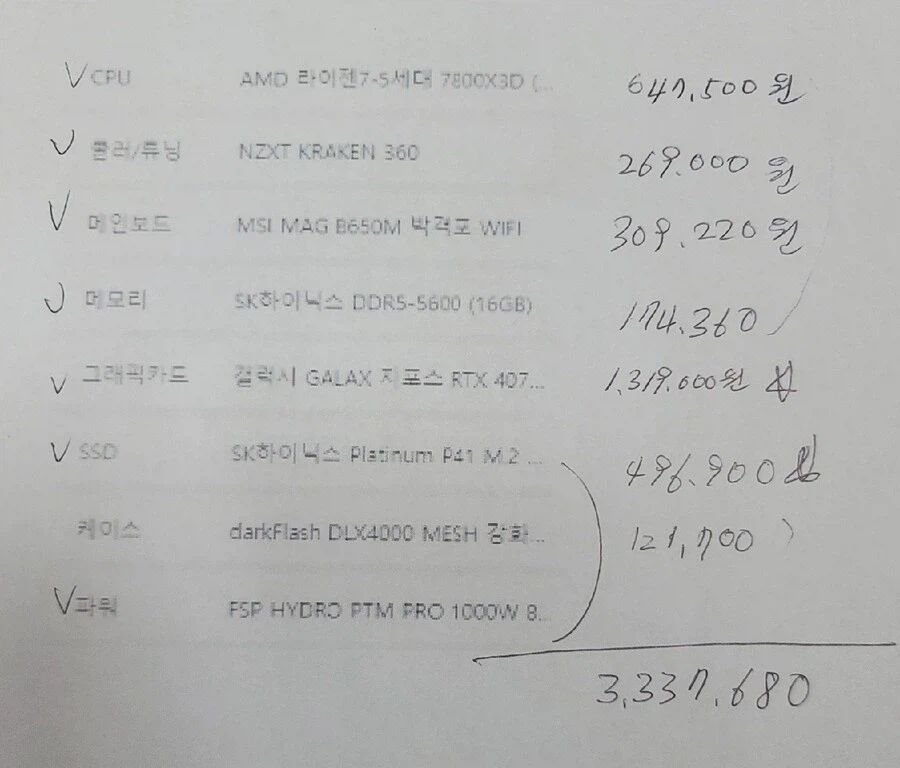 CPU AMD 라이젠7-5세대 7800X3D (... 647,500원
쿨러/튜닝 NZXT KRAKEN 360 269.000 원
메인보드 MSI MAG B650M 박격포 WIFI 309.220원
메모리 SK하이닉스 DDR5-5600 (16GB) 174.360
그래픽카드 갤럭시 GALAX 지포스 RTX 407... 1,319.000원
SSD SK하이닉스 Platinum P41 M.2 ... 496.900
케이스 darkFlash DLX4000 MESH 강화... 121,700
파워 FSP HYDRO PTM PRO 1000W 8...
3,337,680